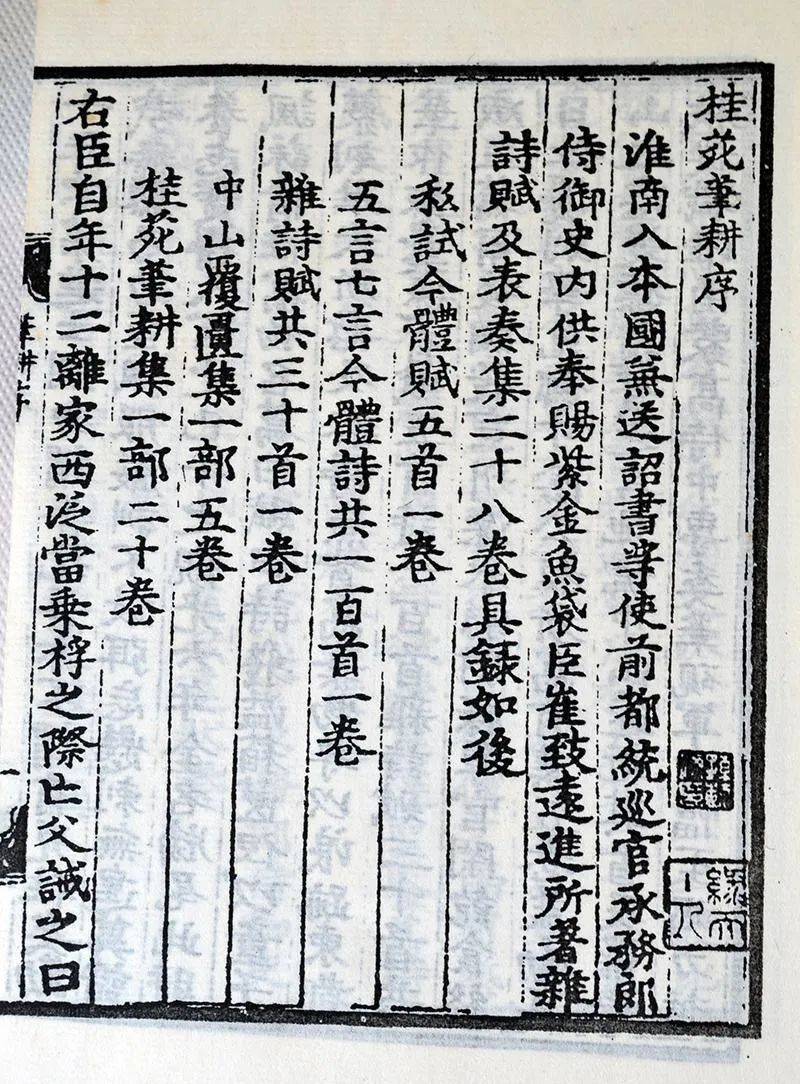 桂苑筆耕序
淮南入本國蒹送詔書等使前都統巡官承務郎
侍御史内供奉賜紫金魚袋臣崔致遠進所著雜
詩賦及表奏集二十八卷具録如後
私試今體賦五首一卷
五言七言今體詩共一百首一卷
雜詩賦共三十首一卷
中山覆簣集一部五卷
桂苑筆耕集一部二十卷
右臣自年十二離家西泛當乗桴之際亡父誡之曰
筆耕序